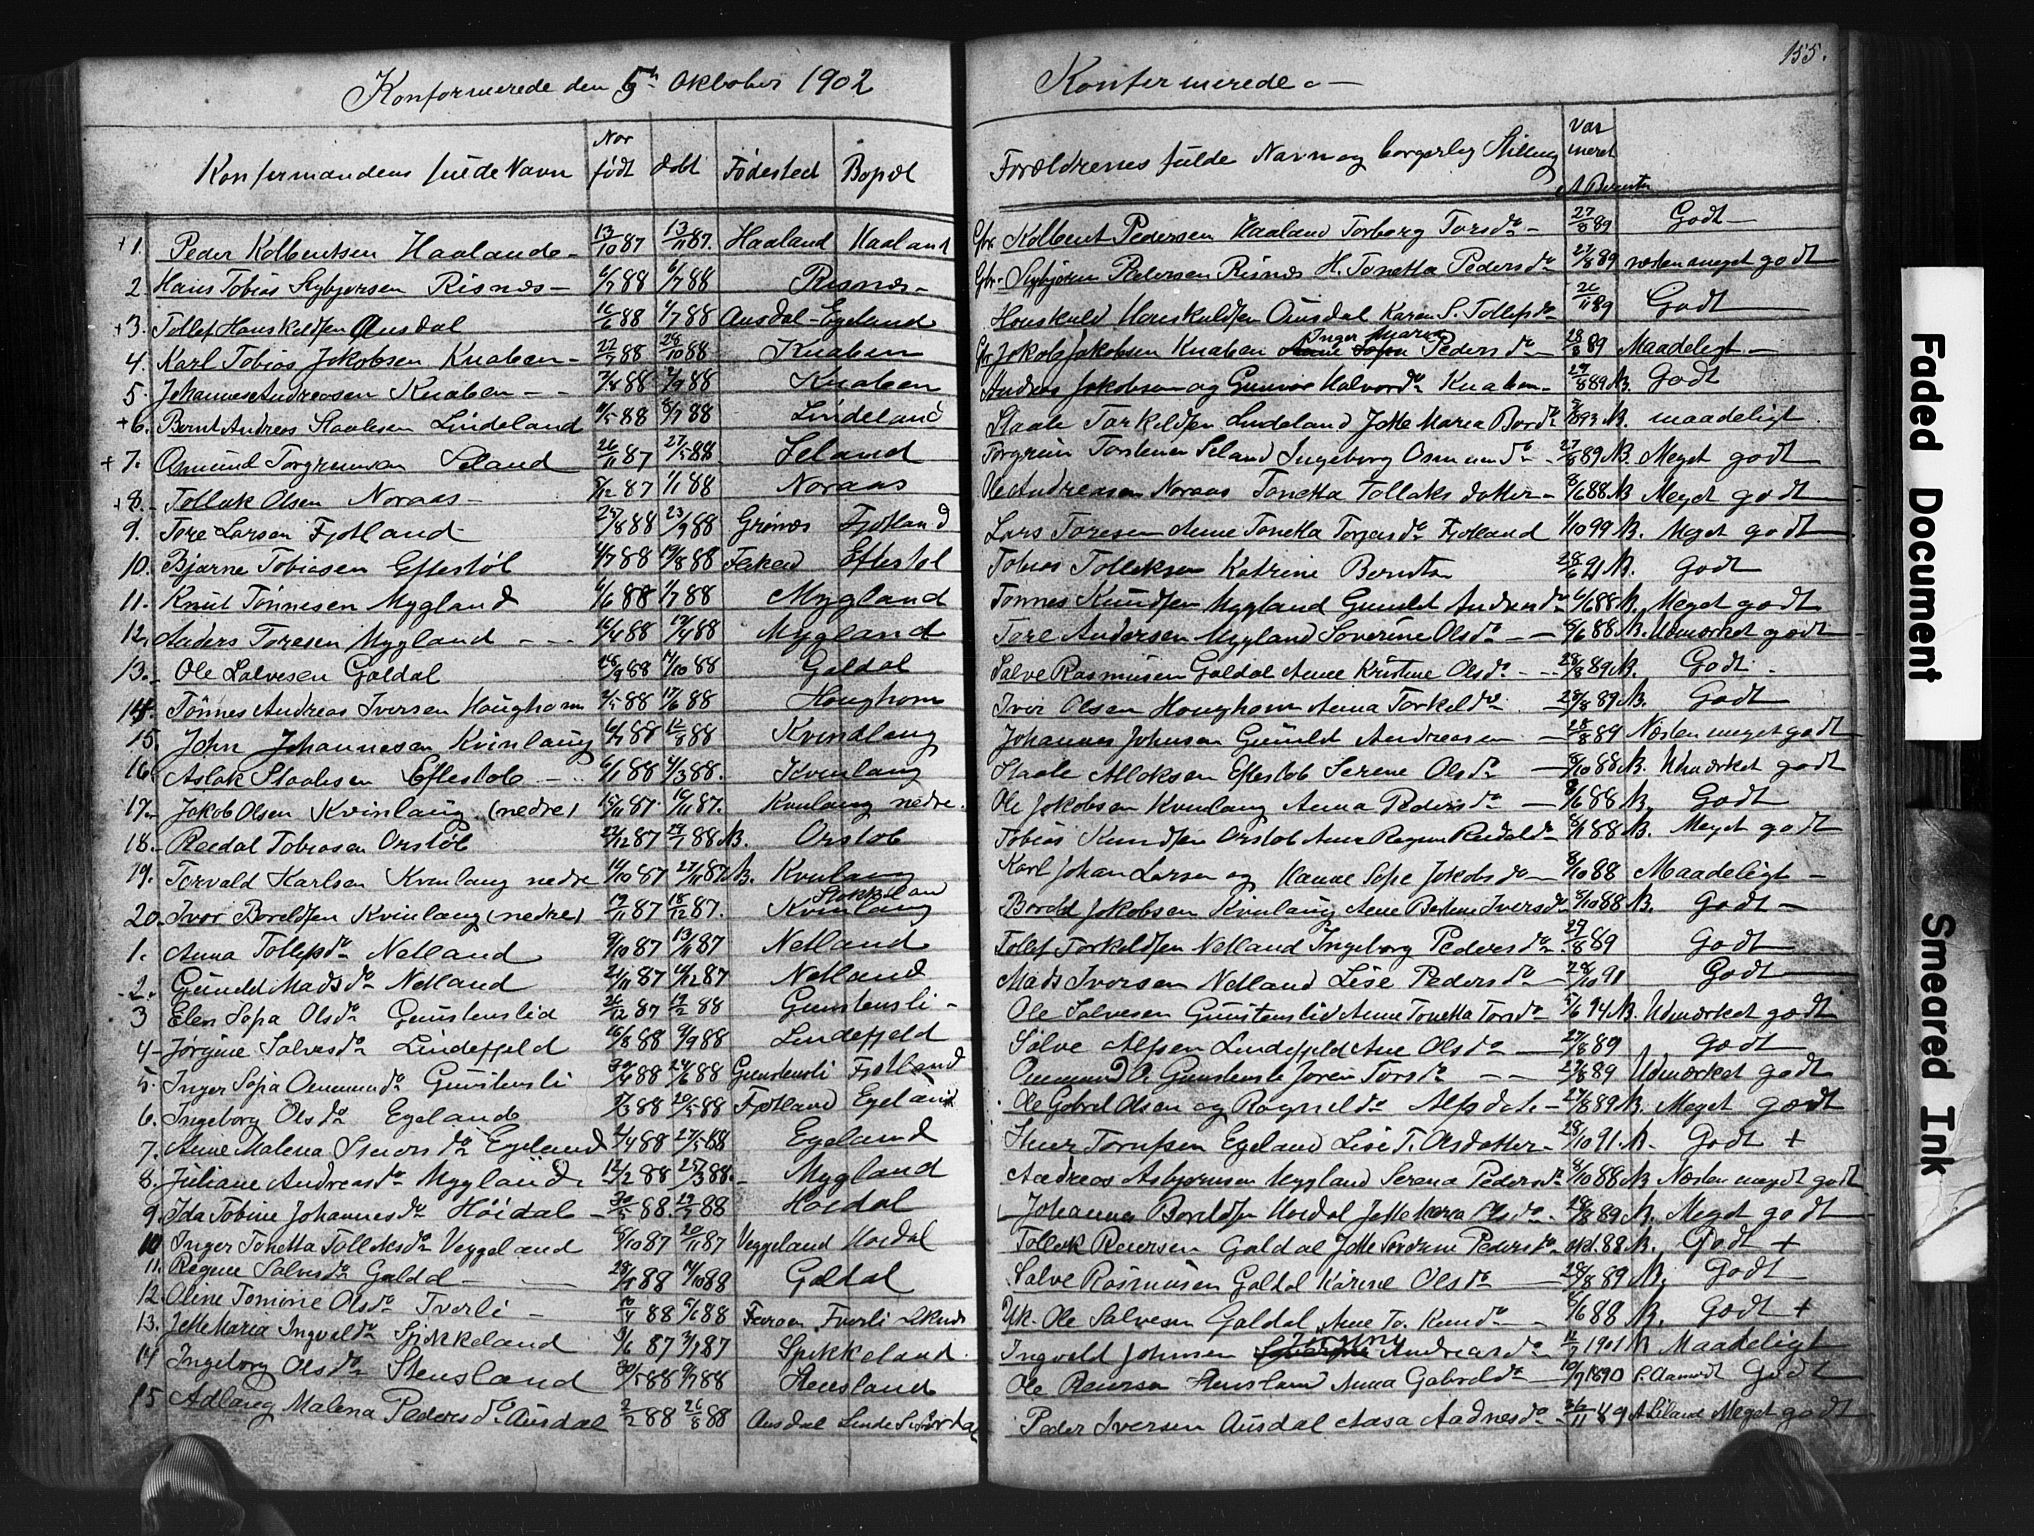 Konformerede den 5te Oktober 1902
Konfirmandens fulde Navn Naar født døbt Fødested Bopæl
+1. Peder Kolbentsen Haalande- 13/10 87 13/11 87. Haaland Haaland
2. Hans Tobias Sybjørsen Risnæs- 6/7 88 Risnæs-
+3. Tollef Houskuldsen Ausdal 16/6 88 1/7 88 Ausdal-Egeland
4. Karl Tobias Jokobsen Knaben- 88 28/10 88 Knaben
5. Johannes Andreasen Knaben-- 88 2/9 88 Knaben
+6. Bernt Andreas Staalesen Lindeland 88 8/7 88 Lindeland
+7. Omund Torgrimsen Seland 26/11 87 27/5 88 Seland
+8. Tollak Olsen Noraas- 87 1/1 88 Noraas
9. Tore Larsen Fjotland 25/8 88 23/9 88 Grinæs Fjotland
10. Bjarne Tobiasen Eftestøl 88 88 Eftestøl
11. Knut Tønnesen Mygland 88 1/7 88 Mygland
12. Anders Toresen Mygland --- 16/4 88 88 Mygland
13. Ole Salvesen Galdal 28/9 88 88 Galdal
14. Tønnes Andreas Iversen Houghom 88 17/6 88 Houghom
15. John Johannesen Kvinlaug 88 12/8 88 Kvindlaug
16. Aslak Staalesen Eftestøl --- 6/1 88 4/3 88. Kvinlaug
17. Jakob Olsen Kvinlaug (nedre) 15/11 87. 87. Kvinlaug nedre.
18. Reidal Tobiasen Orstøl 87 88 N. Orstøl
19. Torvald Karlsen Kvinlaug nedre 14/10 87 27/11 87 N. Kvinlaug
20. Ivor Boreldsen Kvinlaug (nedre) 19/11 87 18/12 87. Kvinlaug
1. Anna Tollefsdo Netland 9/10 87 13/11 87 Netland
2. Gunild Madsdo Netland 21/11 87 87 Netland
3 Elen Sofia Olsdo Gunstenslid 26/12 87 19/2 88 Gunstensli-
4- Jørgine Salvesdo Lindefjeld 16/8 88 9/9 88 Lindefjeld
5. Inger Sofia Omunddo Gunstensli 88 24/6 88 Gunstensli Fjotland
6. Ingeborg Olsdo Egeland 88 20/5 88 Fjotland Egeland
7. Anne Malena Egeland 88 27/5 88 Egeland
8. Juliane Andreasdo Mygland. 12/2 88 25/3 88. Mygland
9. Ida Tobine Johannesdo Höidal - 88. 88 Höidal
10 Inger Tonetta Tolleksdo Veggeland 87 20/11 87 Veggeland Hoidal
11. Regine Salvesdo Galdal- 88 14/10 88 Galdal
12. Oline Tomine Olsdo Tverli- 88 88
13. Jette Maria Ingvaldo Spikkeland 87 87 Spikkeland
14 Ingeborg Olsdo Stensland 30/5 88 9/7 88 Stensland
15 Adlaug Malena Pedersdo Ausdal 2/2 88 26/8 88 Ausdal
155.
Konfirmerede.-
Forældrenes fulde Navn og borgerlig Stilling Var
Gbr Kolbent Pedersen Haaland Torborg Torsdo- 27/8 89 Godt-
Gbr- Sybjörn Pedersen Risnæs H. Tonetta Pedersdo 27/8 89 næsten meget godt
Houskuld Houskuldsen Ausdal Karen S. Tollefsdo 26/11 89 Godt
Inger Maria
Gbr Jokob Jakobsen Knaben Anne Sofie Pedersdo- 28/8 89 Maadeligt-
Andreas Jokobsen og Gunvor Halvordo Knaben- 89 N. Godt
Staale Tarkeldsen Lindeland Jette Maria 93 N. maadeligt.
Torgrim Torstensen Seland Ingeborg Osmundo- 27/8 89 N. Meget godt
Ole Andreasen Noraas Tonetta Tollaks datter- 8/6 88 N Meget godt
Lars Toresen Anne Tonetta Torjusdo Fjotland 99 N. Meget godt
Tobias Tolleksen Katrine 28/6 91 N. Godt
Tønnes Knudsen Mygland Gunild 88 N. Meget godt
Tore Andersen Mygland Soverine Olsdo -- 8/6 88 N. Udmærket godt
Salve Rasmusen Galdal Anne Kristine Olsdo --- 28/8 89 N. Godt.
Ivor Olsen Houghom Anna Torkeldo. 28/8 89 N. Godt
Johannes Johnsen Gunild Andreasen - 28/8 89 Næsten meget godt
Staale Alloksen Eftestøl Serene Olsdo 8/10 88 N. Udmærket godt
Ole Jokobsen Kvinlaug Anna Pedersdo - 8/6 88 N. Godt
Tobias Knudsen Orstøl 88 N. Meget godt
Karl Johan Larsen og Hanne Sofie Jokobsdo- 8/10 88 Maadeligt-
Boreld Jakobsen Kvinlaug Ane Iversdo 8/10 88 N. Godt-
Tolef Torkeldsen Netland Ingeborg Pedersdo- 27/8 89 Godt
Mads Iversen Netland Lise Pedersdo- 28/10 91 Godt
Ole Salvesen Gunstenslid Anne Tonetta Torsdo- 94 N. Udmærket godt
Sølve Alfsen Lindefjeld Ane Olsdo - 27/8 89 Godt
Gunstensli Joren Torsdo -- 27/8 89 Udmærket godt
Ole Gabrel Olsen og Ragnildo Alfsdat.- 27/8 89 N. Meget godt
Egeland Lise T. Olsdatter- 28/10 91 N- Godt +
Andreas Asbjørnsen Mygland Serena Pedersdo 8/10 88 N Næsten meget godt
Johannes Boreldsen Hoidal Jette Maria Olsdo- 28/8 89 N. Meget godt
Tollak Reiersen Galdal Jette Pedersdo- okt. 88 N. Godt +
Salve Rasmusen Galdal Karine Olsdo - 28/8 89 N. Godt
Uk. Ole Salvesen Galdal Anne To. - 8/6 88 N. Godt +
Ingvald Johnsen Andreasdo- 12/7 1901 N Maadeligt
Ole Reiersen Stensland Anna Gabreldo- 19/9 1890 Godt
Peder Iversen Ausdal Aasa Aadnesdo- Meget godt
Faded Document
Smeared Ink